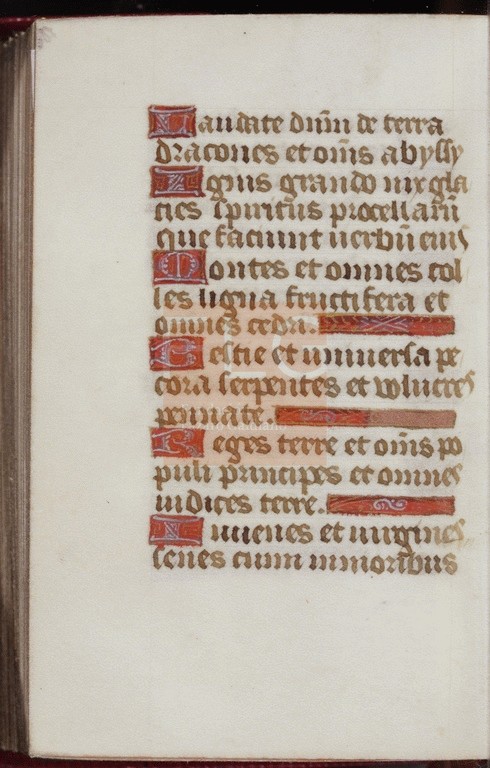 Laudate dñm de terra
dracones et om̃s abyssy
Ignis grando nix gla
cies spiritus procellarũ
que faciunt verbũ eius
Montes et omnes col
les ligna fructifera et
omnes cedri.
Bestie et universa pe
cora serpentes et volucres
pennate.
Reges terre et om̃s po
puli principes et omnes
iudices terre.
Iuvenes et virgines
senes cum iunioribus